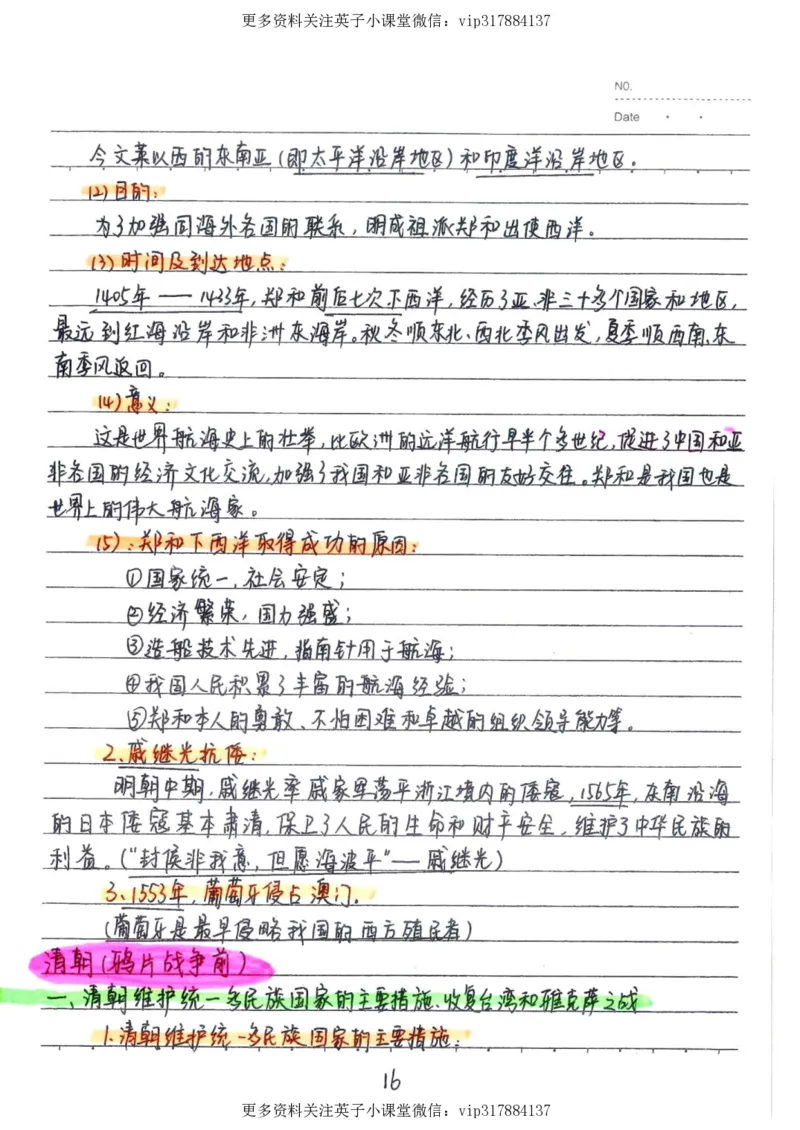 更多资料关注英子小课堂微信：vip317884137
NO.
Date
今文莱以西的东南亚（即太平洋沿岸地区）和印度洋沿岸地区。
(2)目的：
为了加强同海外各国的联系，明成祖派郑和出使西洋。
(3)时间及到达地点：
1405年——1433年，郑和前后七次下西洋，经历了亚、非三十多个国家和地区，
最远到红海沿岸和非洲东海岸。秋冬顺东北、西北季风出发，夏季顺西南、东
南季风返回。
(4)意义：
这是世界航海史上的壮举，比欧洲的远洋航行早半个多世纪，促进了中国和亚
非各国的经济文化交流，加强了我国和亚非各国的友好交往。郑和是我国也是
世界上的伟大航海家。
(5)：郑和下西洋取得成功的原因：
①国家统一，社会安定；
②经济繁荣，国力强盛；
③造船技术先进，指南针用于航海；
④我国人民积累了丰富的航海经验；
⑤郑和本人的勇敢、不怕困难和卓越的组织领导能力等。
2、戚继光抗倭：
明朝中期，戚继光率戚家军荡平浙江境内的倭寇，1565年，东南沿海
的日本倭寇基本肃清，保卫了人民的生命和财产安全，维护了中华民族的
利益。（“封侯非我意，但愿海波平”——戚继光）
3、1553年，葡萄牙侵占澳门。
（葡萄牙是最早侵略我国的西方殖民者）
清朝（鸦片战争前）
一、清朝维护统一多民族国家的主要措施、收复台湾和雅克萨之战
1.清朝维护统一多民族国家的主要措施：
16
更多资料关注英子小课堂微信：vip317884137